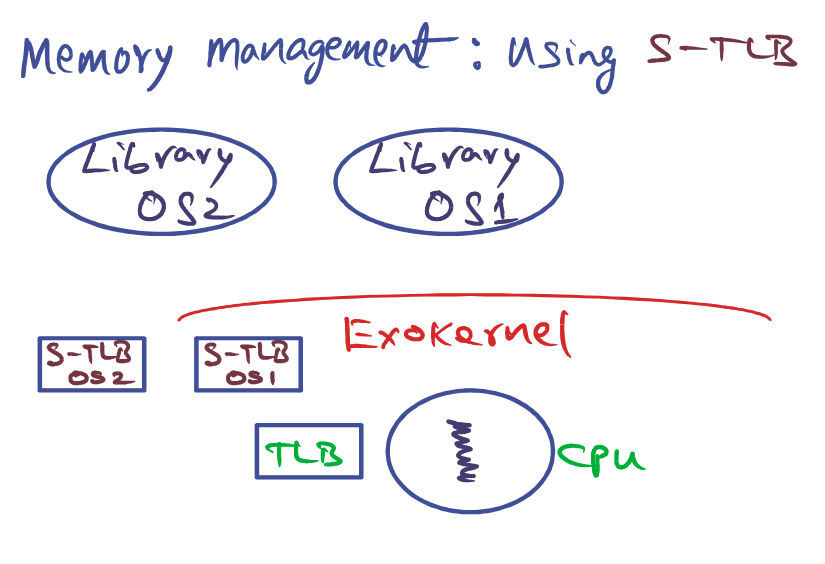 Memory management: Using S-TLB
Library
OS2
Library
OS1
Exokernel
S-TLB
OS2
S-TLB
OS1
TLB
CPU